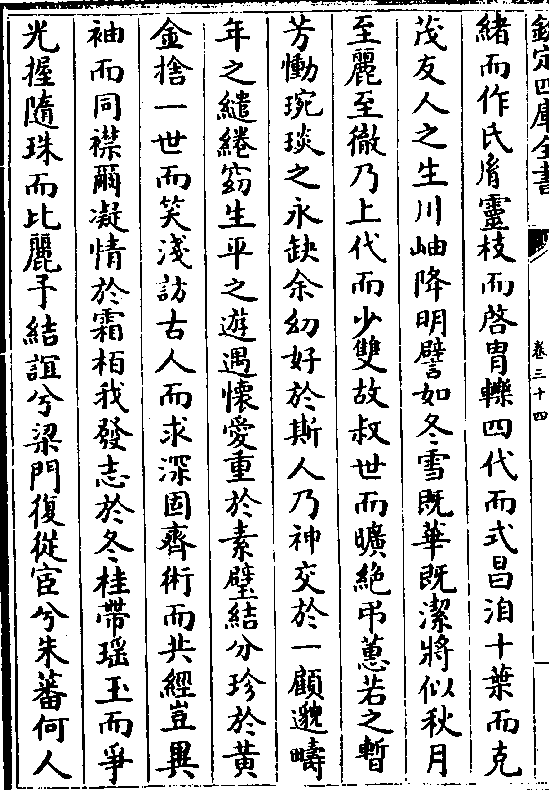 欽定四庫全書
卷三十四
緒而作氏胥靈枝而啓胄轢四代而式昌洎十葉而克
茂友人之生川岫降明譬如冬雪既華既潔將似秋月
至麗至徹乃上代而少雙故叔世而曠絶弔蕙若之暫
芳慟琬琰之永缺余幼好於斯人乃神交於一顧邈疇
年之繾綣窮生平之遊遇懷愛重於素璧結分珍於黄
金捨一世而笑淺訪古人而求深固齊術而共經豈異
袖而同襟爾凝情於霜栢我發志於冬桂帶瑶玉而爭
光握隨珠而比麗予結誼兮梁門復從宦兮朱蕃何人